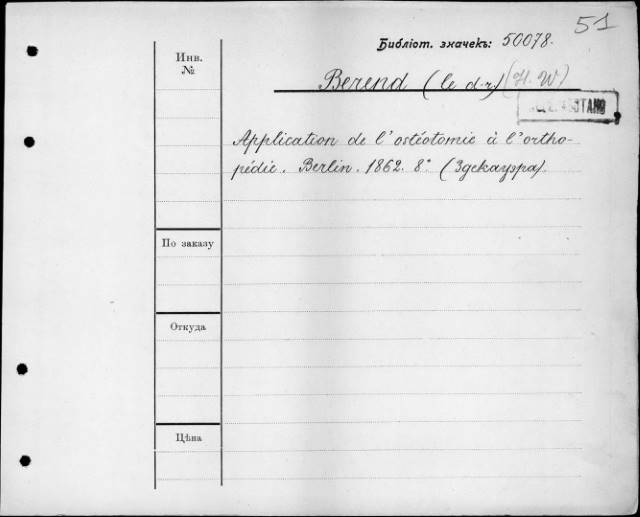 51
Библіот. значекъ: 50078.
Инв.
№
Berend (le d-r) (H. W)
Application de l'ostéotomie à l'ortho-
pédie. Berlin. 1862. 8° (Здекауэра).
По заказу
Откуда
Цѣна